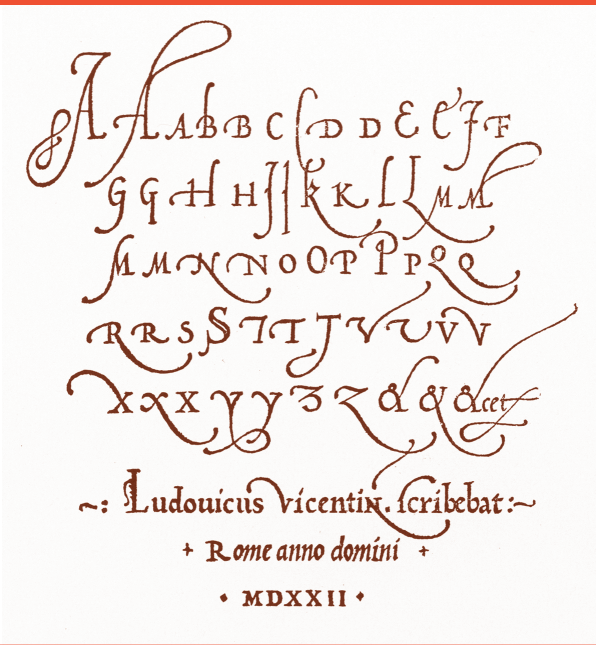 A A A B B C C D D E E F F
G G H H I I K K L L M M
M M N N O O P P P Q Q
R R S S T T T V V V V
X X X Y Y Z Z & & & cet
~: Ludouicus Vicentin. ſcribebat :~
+ Rome anno domini +
• MDXXII •